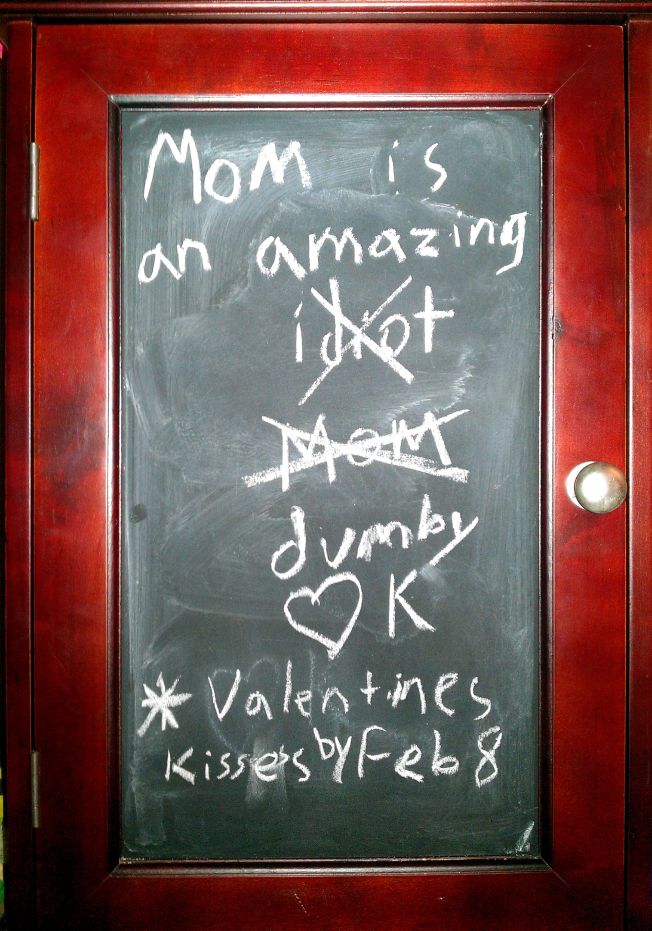 MoM is
an amazing
idiot
MoM
dumby
♡ K
* Valentines
Kisses by Feb 8